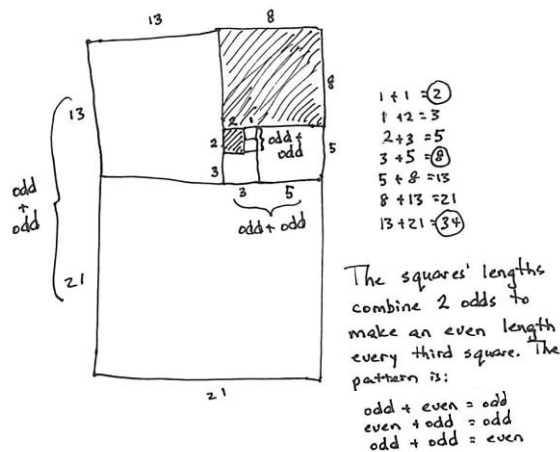 13
8
8
13
2
1
2
odd +
odd
5
3
3
5
odd + odd
odd
+
odd
21
21
1 + 1 = 2
1 + 2 = 3
2 + 3 = 5
3 + 5 = 8
5 + 8 = 13
8 + 13 = 21
13 + 21 = 34
The squares' lengths
combine 2 odds to
make an even length
every third square. The
pattern is:
odd + even = odd
even + odd = odd
odd + odd = even